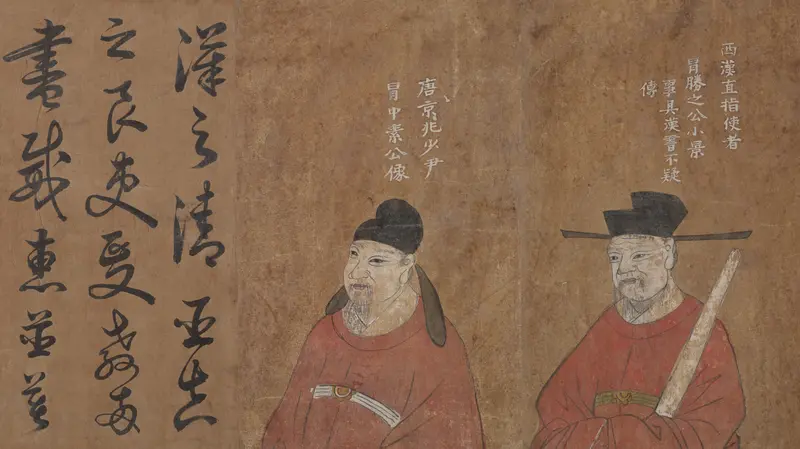 西漢直指使者
冒勝之公小景
事具漢書不疑
傳
唐京兆少尹
冒中素公像
漢之清
之良吏受
惠並